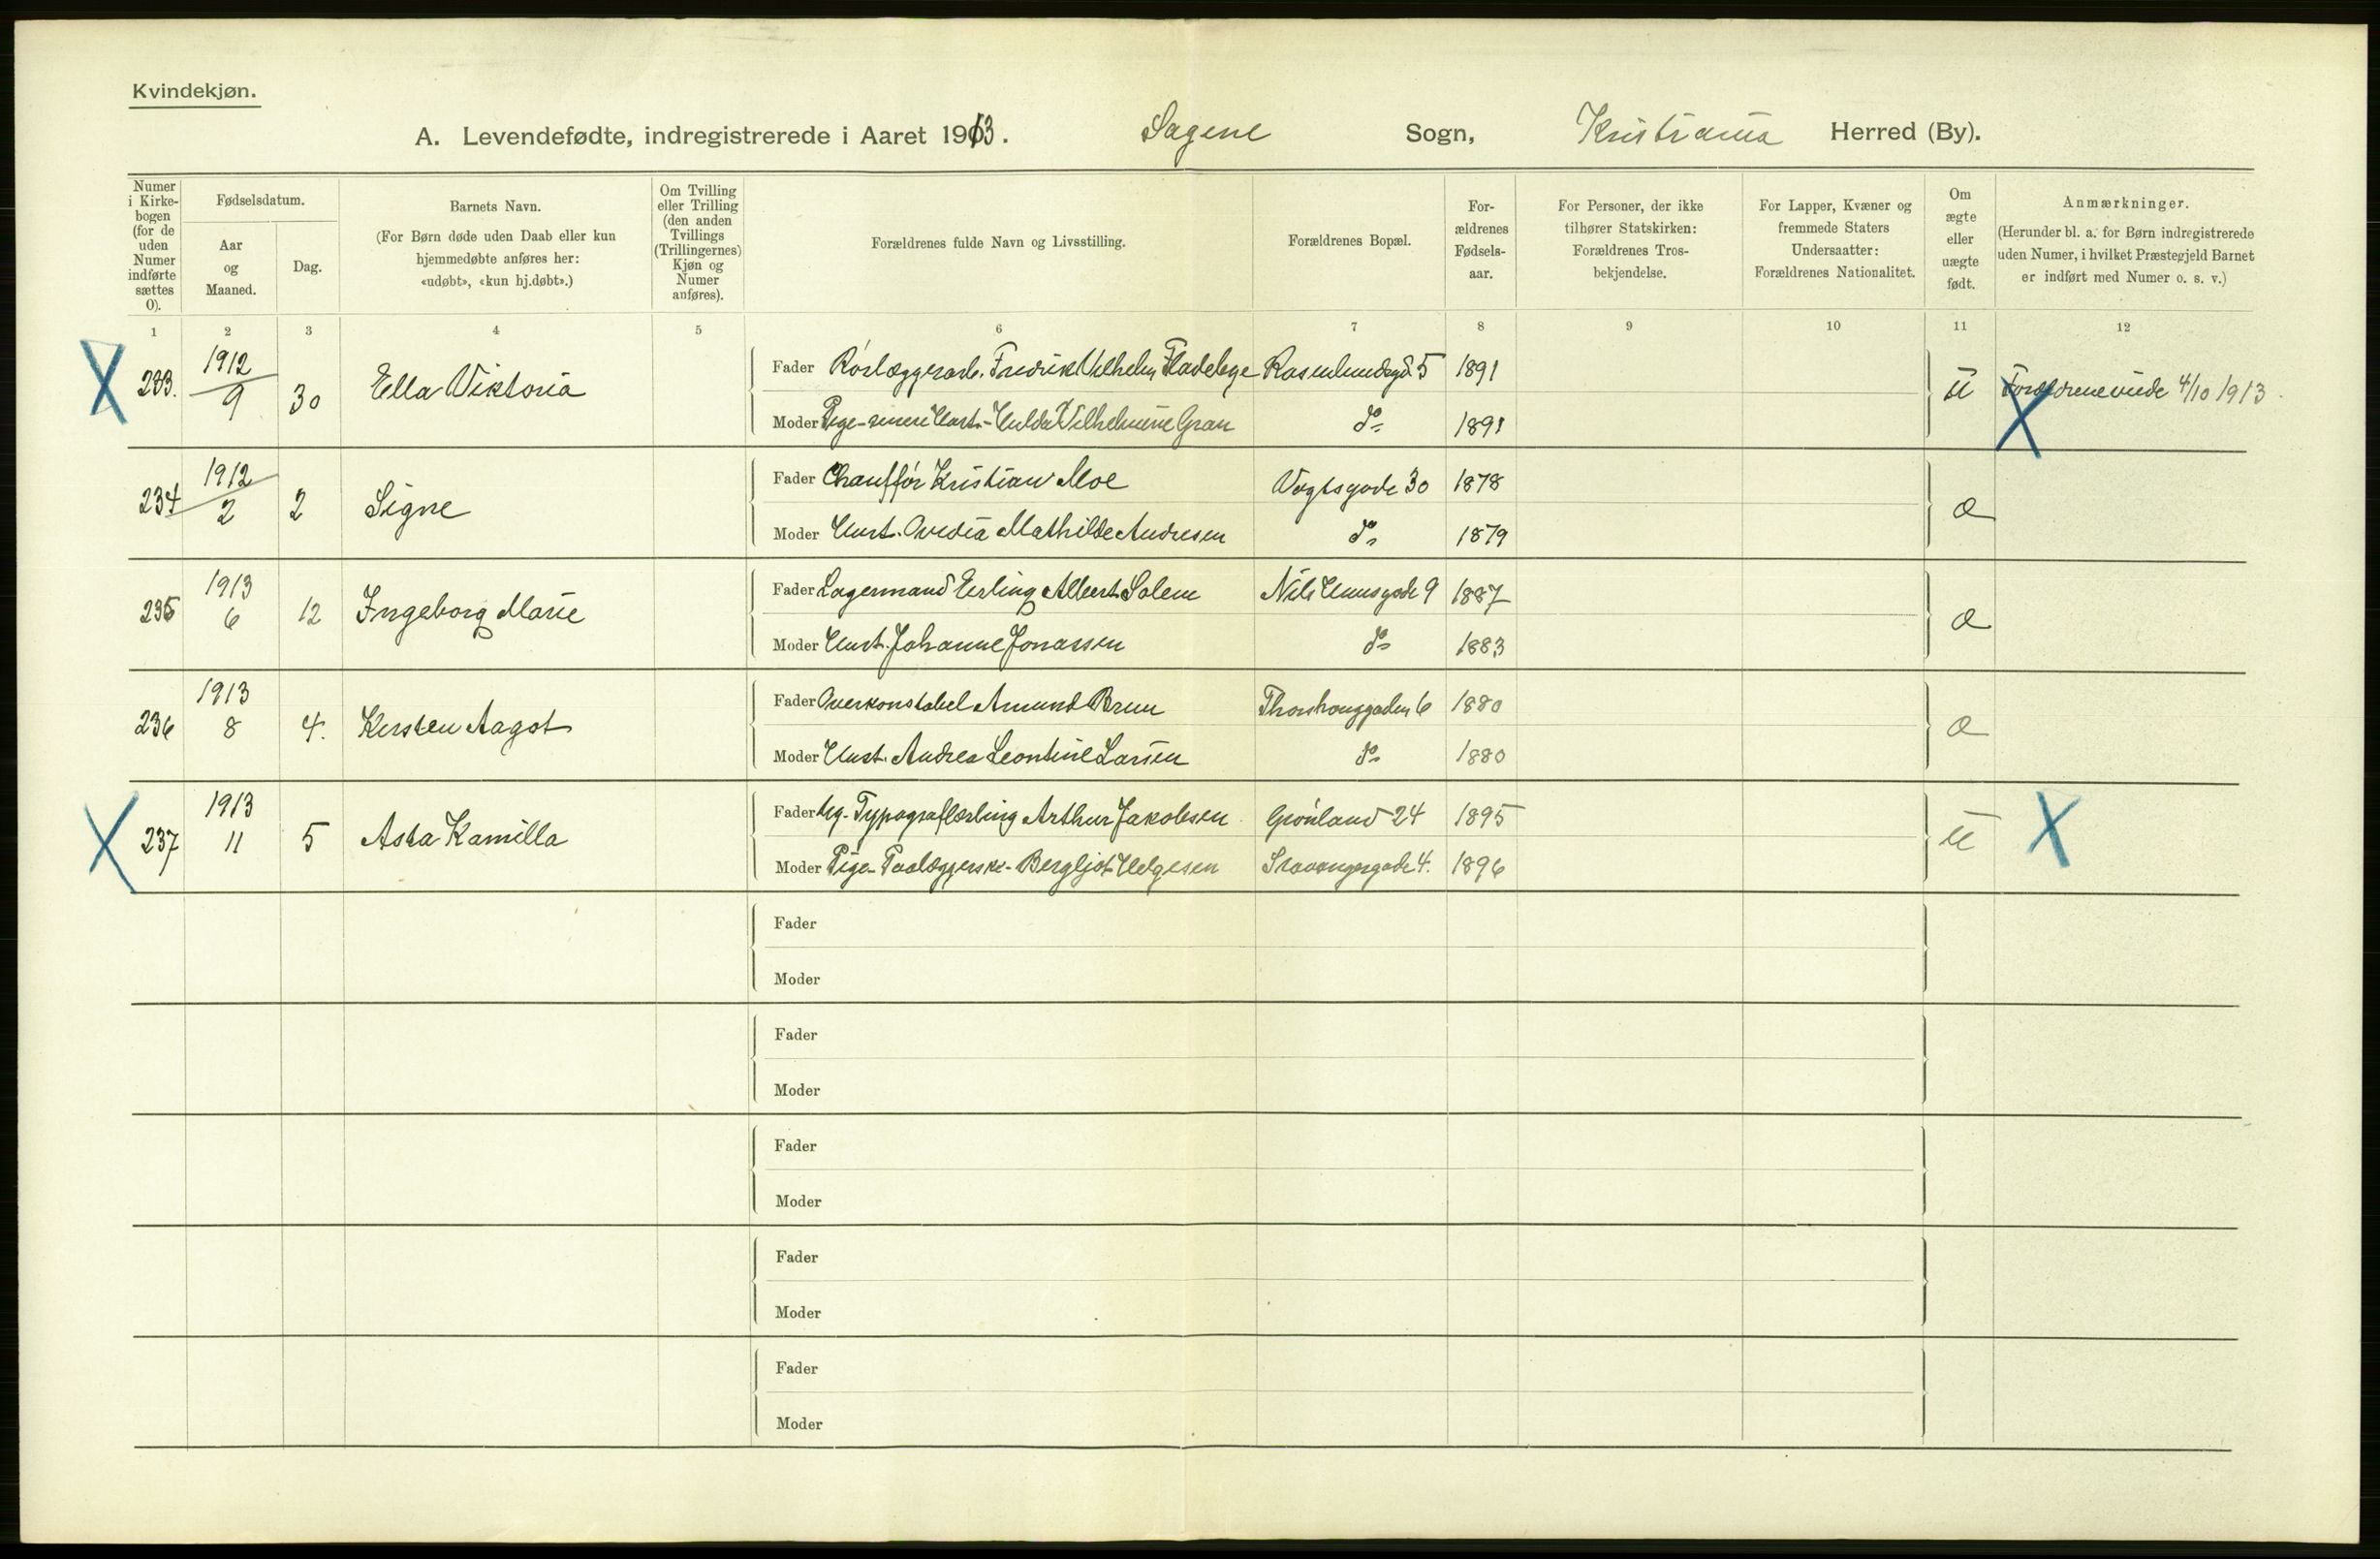 Kvindekjøn.
A. Levendefødte, indregistrerede i Aaret 1913. Sagene Sogn, Kristiania Herred (By).
Numer i Kirke-bogen (for de uden Numer indførte sættes 0).
Fødselsdatum.
Aar og Maaned.
Dag.
Barnets Navn.
(For Børn døde uden Daab eller kun hjemmedøbte anføres her: «udøbt», «kun hj.døbt».)
Om Tvilling eller Trilling (den anden Tvillings (Trillingernes) Kjøn og Numer anføres).
Forældrenes fulde Navn og Livsstilling.
Forældrenes Bopæl.
For-ældrenes Fødsels-aar.
For Personer, der ikke tilhører Statskirken: Forældrenes Tros-bekjendelse.
For Lapper, Kvæner og fremmede Staters Undersaatter: Forældrenes Nationalitet.
Om ægte eller uægte født.
Anmærkninger.
(Herunder bl. a. for Børn indregistrerede uden Numer, i hvilket Præstegjeld Barnet er indført med Numer o. s. v.)
1 2 3 4 5 6 7 8 9 10 11 12
X 233. 1912 9 30 Ella Viktoria
Fader Rørlæggerarb. Fredrik Vilhelm Fladeby Rosenlundsgd. 5 1891
Moder Pige-senere Hust.- Hulda Vilhelmine Gran do 1891
U Forældrene viede 4/10 1913. X
234 1912 2 2 Signe
Fader Chauffør Kristian Moe Vogtsgade 30 1878
Moder Hust. Ovedia Mathilde Andresen do 1879
Æ
235 1913 6 12 Ingeborg Marie
Fader Lagermand Erling Albert Solem Nils Huusgade 9 1887
Moder Hust. Johanne Jonassen do 1883
Æ
236 1913 8 4. Kirsten Aagot
Fader Overkonstabel Amund Brun Thorshouggaden 6 1880
Moder Hust. Andrea Leontine Larsen do 1880
Æ
X 237 1913 11 5 Asta Kamilla
Fader Ug. Typograflærling Arthur Jakobsen Grønland 24 1895
Moder Pige- Paalæggerske- Bergljot Helgesen Stavangergade 4. 1896
U X
Fader
Moder
Fader
Moder
Fader
Moder
Fader
Moder
Fader
Moder